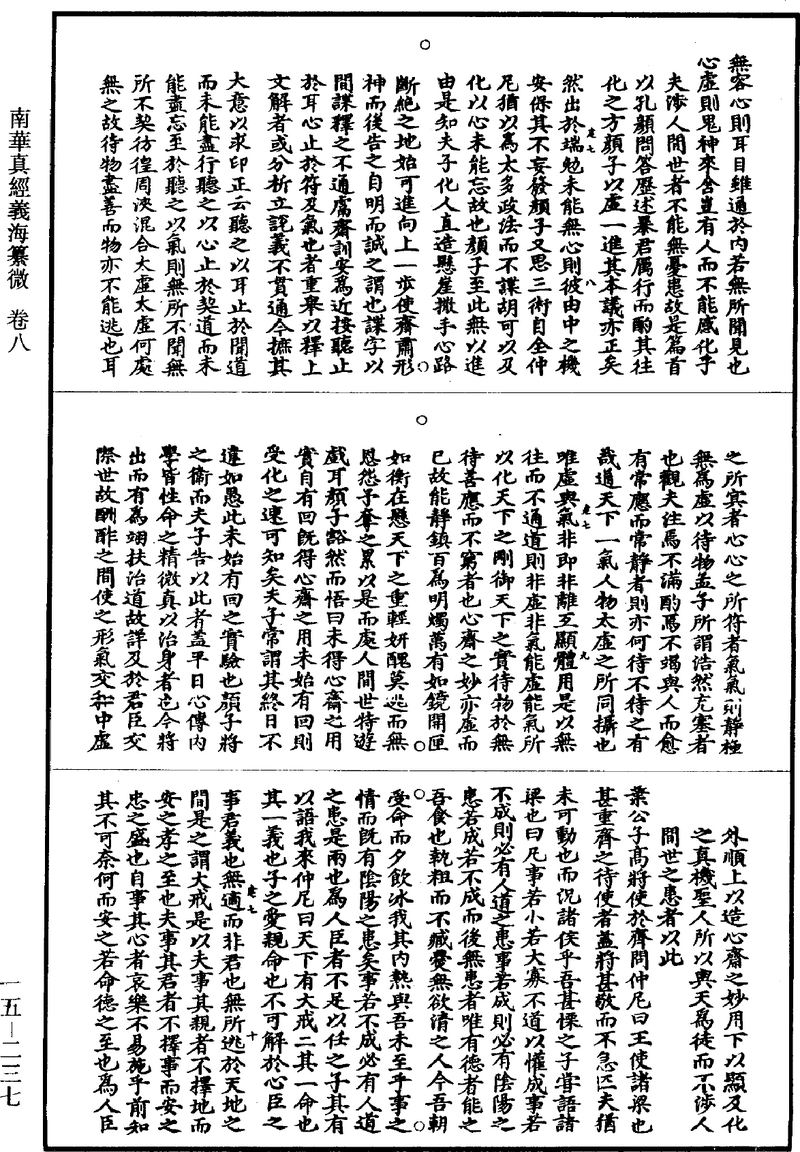 南華真經義海纂微　卷八
無容心則耳目雖通於內若無所聞見也
心虛則鬼神來舍豈有人而不能感化乎
夫涉人間世者不能無憂患故是篇首
以孔顏問答歷述暴君厲行而酌其往
化之方顏子以虛一進其本議亦正矣
然出於端勉未能無心則彼由中之機
安保其不妄發顏子又思三術自全仲
尼猶以為太多政法而不諜胡可以及
化以心未能忘故也顏子至此無以進
由是知夫子化人直造懸崖撒手心路
斷絕之地始可進向上一步使齋肅形
神而後告之自明而誠之謂也諜字以
間諜釋之不通鬳齋訓安為近接聽止
於耳心止於符及氣也者重舉以釋上
文解者或分析立說義不貫通今摭其
大意以求印正云聽之以耳止於聞道
而未能盡行聽之以心止於契道而未
能盡忘至於聽之以氣則無所不聞無
所不契彷徨周浹混合太虛太虛何處
無之故待物盡善而物亦不能逃也耳
之所宾者心心之所符者氣氣則靜極
無為虛以待物孟子所謂浩然充塞者
也觀夫注焉不滿酌焉不竭與人而愈
有常應而常靜者則亦何待不待之有
哉通天下一氣人物太虛之所同攝也
唯虛與氣非即非離互顯體用是以無
往而不通道則非虛非氣能虛能氣所
以化天下之剛御天下之實待物於無
待善應而不窮者也心齋之妙亦虛而
已故能靜鎮百為明燭萬有如鏡開匣
如衡在懸天下之重輕妍醜莫逃而無
恩怨予奪之累以是而處人間世特遊
戲耳顏子豁然而悟曰未得心齋之用
實自有回既得心齋之用未始有回則
受化之速可知矣夫子常謂其終日不
違如愚此未始有回之實驗也顏子將
之衛而夫子告以此者蓋平日心傳內
學皆性命之精微真以治身者也今將
出而有為翊扶治道故詳及於君臣交
際世故酬酢之間使之形氣交和中虛
外順上以造心齋之妙用下以顯及化
之真機聖人所以與天為徒而不涉人
間世之患者以此
葉公子高將使於齊問仲尼曰王使諸梁也
甚重齊之待使者蓋將甚敬而不急匹夫猶
未可動也而況諸侯乎吾甚慄之子嘗語諸
梁也曰凡事若小若大寡不道以懽成事若
不成則必有人道之患事若成則必有陰陽之
患若成若不成而後無患者唯有德者能之
吾食也執粗而不臧爨無欲清之人今吾朝
受命而夕飲冰我其內熱與吾未至乎事之
情而既有陰陽之患矣事若不成必有人道
之患是兩也為人臣者不足以任之子其有
以語我來仲尼曰天下有大戒二其一命也
其一義也子之愛親命也不可解於心臣之
事君義也無適而非君也無所逃於天地之
間是之謂大戒是以夫事其親者不擇地而
安之孝之至也夫事其君者不擇事而安之
忠之盛也自事其心者哀樂不易施乎前知
其不可奈何而安之若命德之至也為人臣
卷七
八
卷七
九
卷七
十
一五—二三七